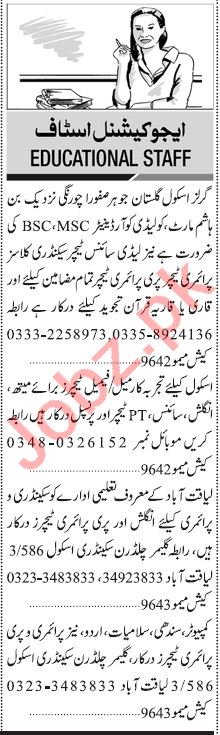 ایجوکیشنل اسٹاف
EDUCATIONAL STAFF
گرلز اسکول گلستان جوہر صفورا چورنگی نزدیک بن
ہاشم مارٹ، کو لیڈی کوآرڈینیٹر BSC،MSC کی
ضرورت ہے نیز لیڈی سائنس ٹیچر سیکنڈری کلاسز
پرائمری ٹیچر پری پرائمری ٹیچر تمام مضامین کیلئے اور
قاری یا قاریہ قرآن تجوید کیلئے درکار ہے رابطہ
0333-2258973،0335-8924136
کیش میمو 9642
اسکول کیلئے تجربہ کار میل/فیمیل ٹیچرز برائے میتھ،
انگلش، سائنس، PT ٹیچر اور پرنسپل درکار ہیں رابطہ
کریں موبائل نمبر 0326152-0348
کیش میمو 9642
لیاقت آباد کے معروف تعلیمی ادارے کو سیکنڈری و
پرائمری کیلئے انگلش اور پری پرائمری ٹیچرز درکار
ہیں، رابطہ گلیمر چلڈرن سیکنڈری اسکول 3/586
لیاقت آباد 34923833، 0323-3483833
کیش میمو 9643
کمپیوٹر، سندھی، سلامیات، اردو، نیز پرائمری و پری
پرائمری ٹیچرز درکار، گلیمر چلڈرن سیکنڈری اسکول
3/586 لیاقت آباد 0323-3483833
کیش میمو 9643
Jobz.pk